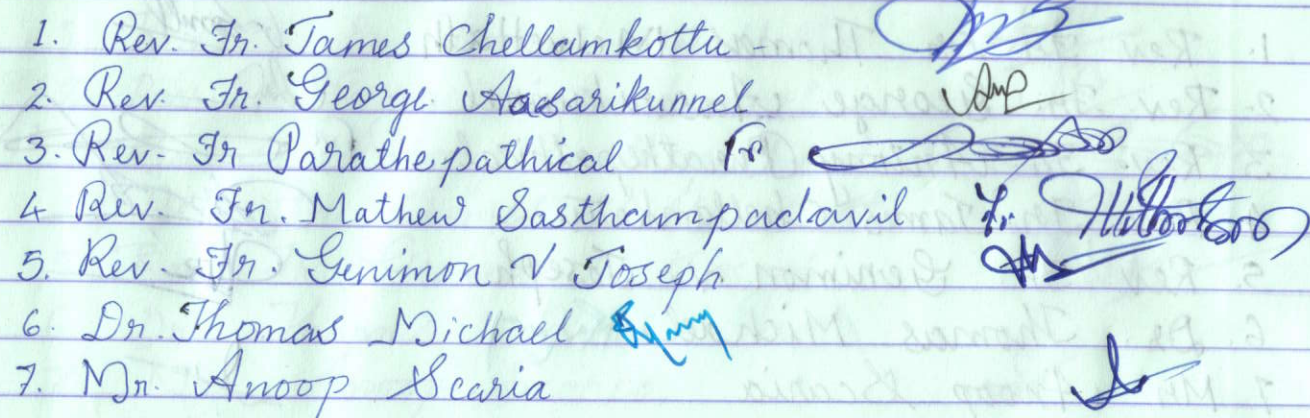 1. Rev. Fr. James Chellamkottu -
2. Rev. Fr. George Aaesarikunnel
3. Rev. Fr Parathepathical Fr
4 Rev. Fr. Mathew Sasthampadavil Fr.
5. Rev. Fr. Genimon V Joseph
6. Dr. Thomas Michael
7. Mr. Anoop Scaria